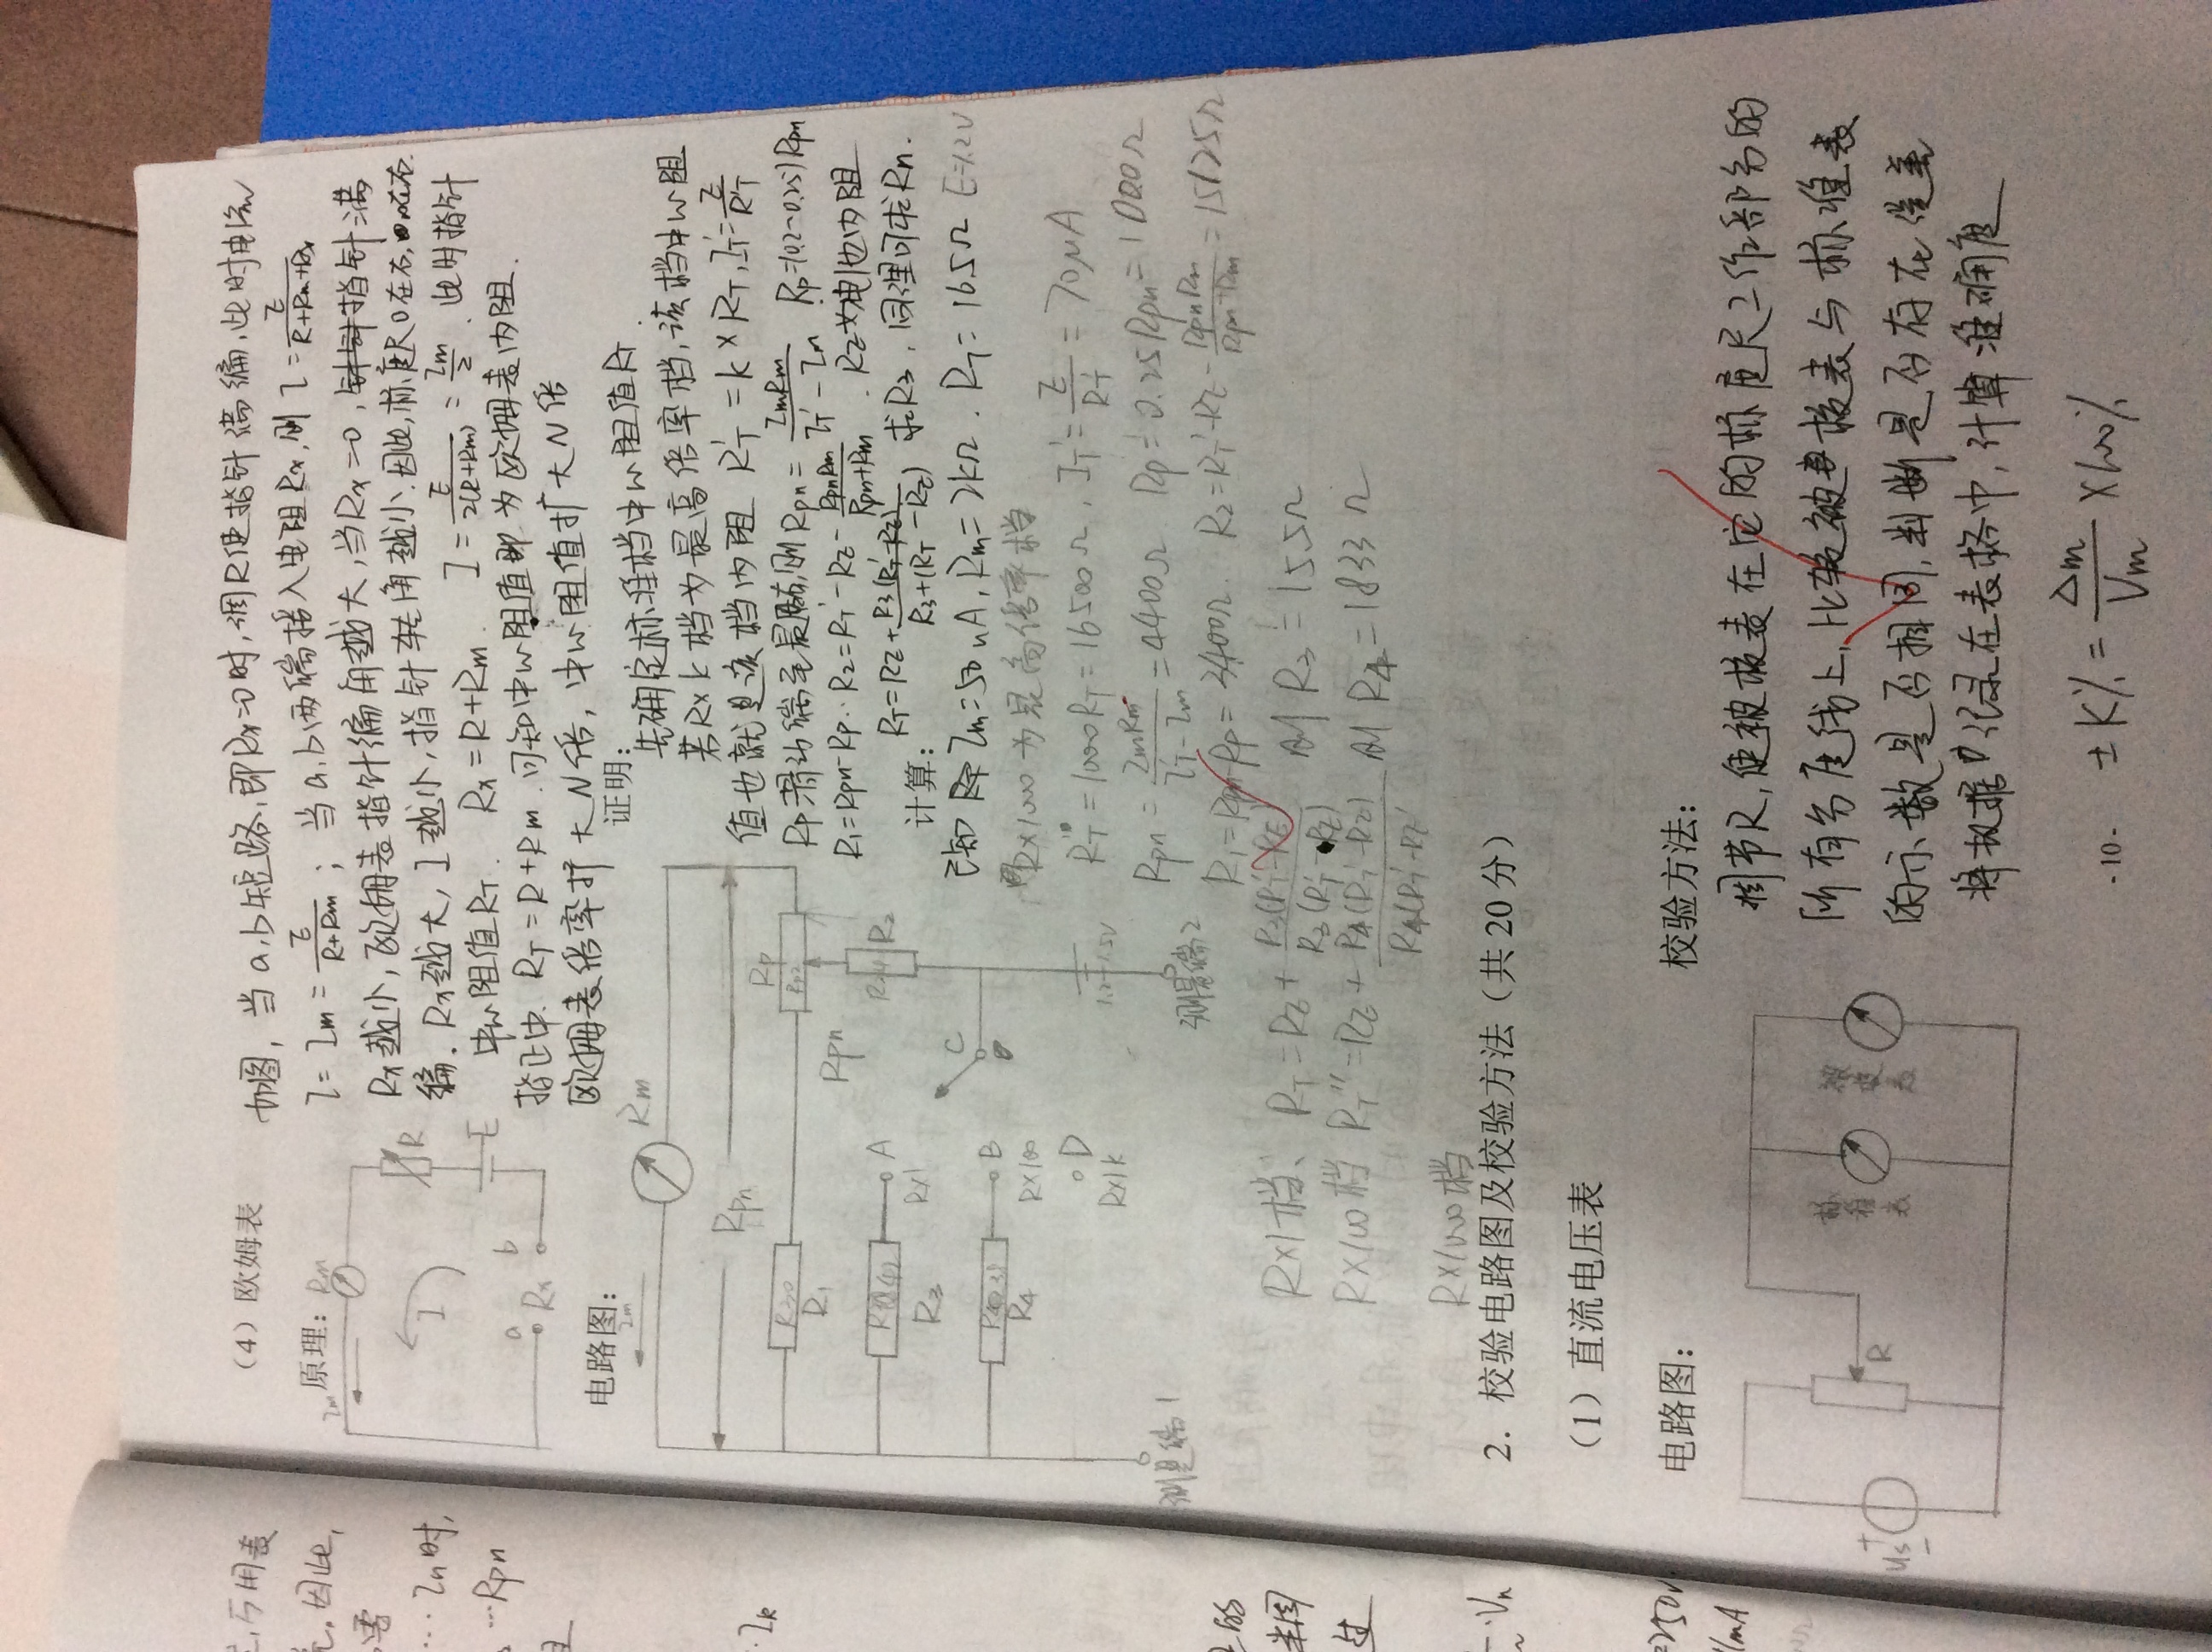 （4）欧姆表
如图，当a,b短路，即Rx=0时，调R使指针满偏，此时电流
原理：
I=Im=E/(R+Rm)；当a,b两端接入电阻Rx，则I=E/(R+Rm+Rx)
Rx越小，欧姆表指针偏角越大，当Rx=0，指针满
偏．Rx越大，I越小，指针转角越小．因此，标度尺0在右，∞在右．
中心阻值RT．Rx=R+Rm．I=E/2(R+Rm)=Im/2．此时指针
指正中．RT=R+Rm．可知中心阻值即为欧姆表内阻．
欧姆表倍率扩大N倍，中心阻值扩大N倍
Im
Rm
R
I
E
a Rx b
电路图：
Im
Rm
Rpn
Rp
R1
Rpn
R2
A
R3
R×1
C
B
R4
R×100
D
R×1K
1.2-1.5V
测量端1
测量端2
证明：
先确定标准档中心阻值RT．
若R×k档为最高倍率档，该档中心阻
值也就是该档内阻 RT'=k×RT，IT'=E/RT'
Rp滑动端至最右，则Rpn=ImRm/(IT'-Im) Rp=(0.2~0.25)Rpn
R1=Rpn-Rp．R2=RT'-RZ-RpnRm/(Rpn+Rm)．RZ为电池内阻
RT=RZ+R3(RT'-RZ)/(R3+(RT'-RZ)) 求R3，同理可求Rn．
计算：
已知 Im=50uA，Rm=2kΩ．RT=16.5Ω E=1.2V
R×1000为最高倍率档
RT'=1000RT=16500Ω，IT'=E/RT'=70μA
Rpn=ImRm/(IT'-Im)=4400Ω Rp=0.25Rpn=1000Ω
R1=Rpn-Rp=3400Ω．R2=RT'-RZ-RpnRm/(Rpn+Rm)=15125Ω
R×1档：RT=RZ+R3(RT'-RZ)/R3(RT'-RZ) 则R3=15.5Ω
R×100档 RT''=RZ+R4(RT'-RZ)/R4(RT'-RZ) 则R4=1833Ω
R×1000档
2．校验电路图及校验方法（共20分）
（1）直流电压表
电路图：
Us
+
-
R
标准表
被校表
校验方法：
调节R，使被校表在它的标度尺工作部分的
所有分度线上，比较被校表与标准表
的示数是否相同，判断是否存在误差
将数据记录在表格中，计算准确度
±K%=Δm/Vm×100%
-10-